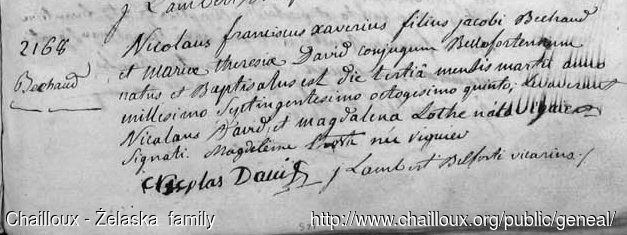 J Lambert
2168
Bechaud
Nicolaus franciscus xaverius filius jacobi Bechaud
et mariæ theresiæ David conjugum Bellofortensium
natus et Baptisatus est die tertiâ mensis martii anno
millesimo Septingentesimo octogesimo quinto, Levaverunt
Nicolaus David, et magdalena Lothe nata
signati. Magdeleine née viguier
Nicolas David J Lambert Belforti vicarius
Chailloux - Żelaska family
http://www.chailloux.org/public/geneal/